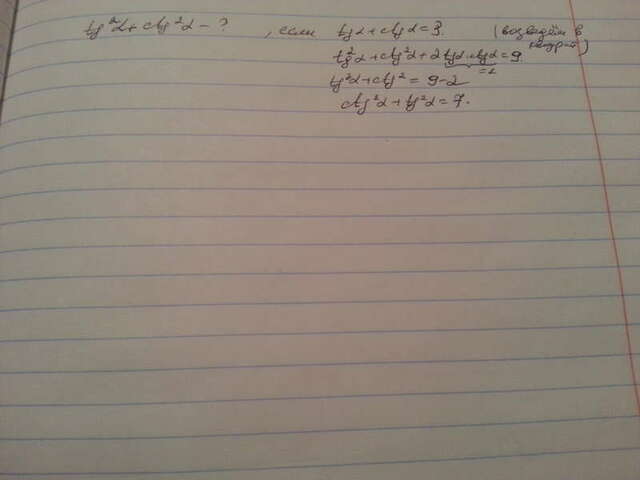 tg²α + ctg²α - ? , если tgα + ctgα = 3. (возведём в квадрат)
tg²α + ctg²α + 2tgα·ctgα = 9.
=1
tg²α + ctg² = 9-2
ctg²α + tg²α = 7.